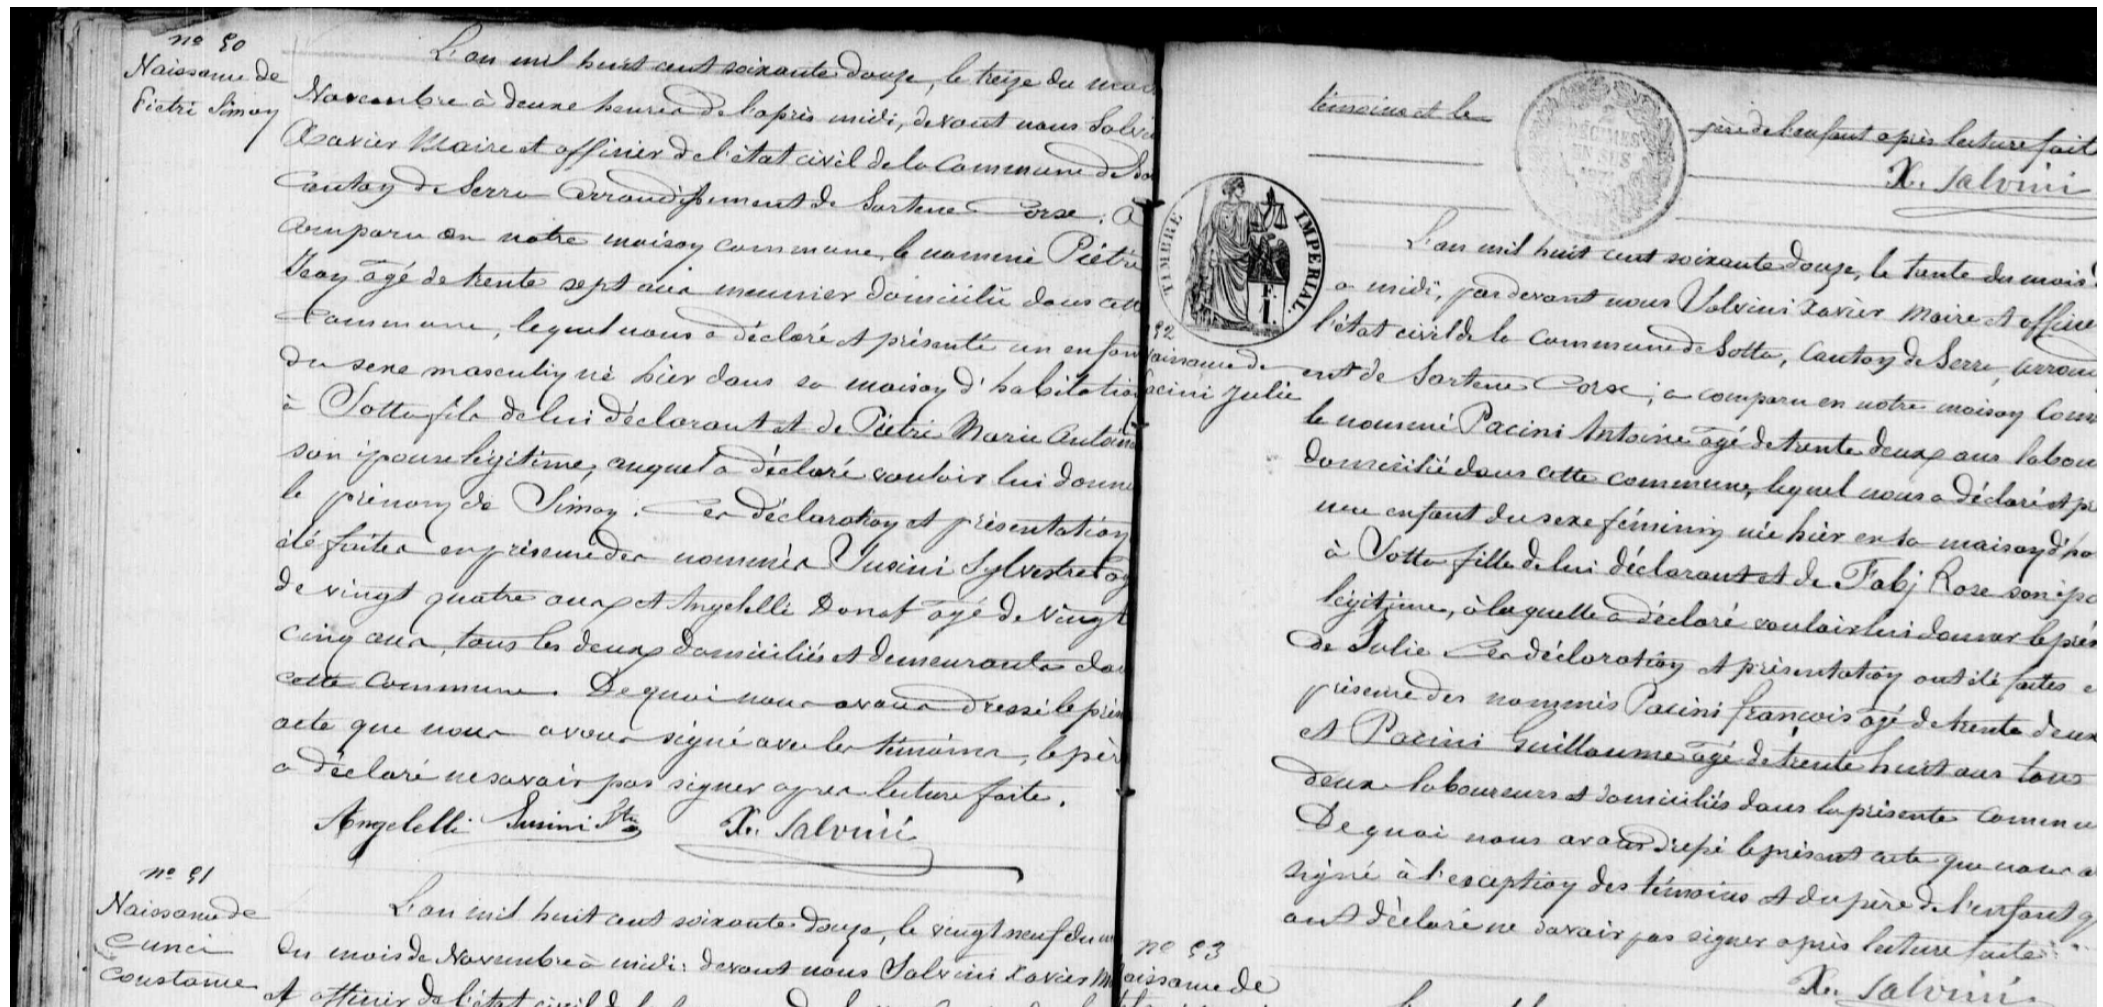 nº 50
Naissance de
Pietri Simon
L'an mil huit cent soixante douze, le treize du mois
Novembre à deuxe heures de l'après midi, devant nous Salvini
Xavier Maire et officier de l'état civil de la Commune de So
Canton de Serra arrondissement de Sartene Corse, a
comparu en notre maison commune, le nommé Piétri
Jean agé de trente sept ans meunier domicilié dans cette
commune, lequel nous a déclaré et présenté un enfan
du sexe masculin né hier dans sa maison d'habitation
à Sotta fils de lui déclarant et de Piétri Marie Antoine
son épouse légitime, auquel a déclaré vouloir lui donne
le prénom de Simon. Ces déclaration et présentation
été faites en présence des nommés Susini Sylvestre ag
de vingt quatre ans et Angelelli Donat agé de vingt
cinq ans, tous les deux domiciliés et demeurants da
cette commune. De quoi nous avons dressé le prés
acte que nous avons signé avec les témoins, le pèr
a déclaré ne savoir pas signer après lecture faite.
Angelelli Susini Xr. Salvini
nº 51
Naissance de
Cunci
Constance
L'an mil huit cent soixante douze, le vingt neuf du m
du mois de Novembre à midi: devant nous Salvini Xavier M
et officier de l'état civil de la
témoins et le père de l'enfant après lecture fait
2 DÉCIMES EN SUS
X. Salvini
TIMBRE IMPERIAL.
F. 1.
52
aissance de
acini Julie
L'an mil huit cent soixante douze, le trente du mois
a midi, par devant nous Salvini Xavier Maire et officie
l'état civil de la Commune de Sotta, Canton de Serra, arron
ent de Sartene Corse; a comparu en notre maison Com
le nommé Pacini Antoine agé de trente deux ans labou
domicilié dans cette commune, lequel nous a déclaré et pr
une enfant du sexe féminin née hier en sa maison d'ha
à Sotta fille de lui déclarant et de Fabj Rose son épo
légitime, à laquelle a déclaré vouloir lui donner le prén
de Julie Ces déclaration et présentation ont été faites e
présence des nommés Pacini françois agé de trente deux
et Pacini Guillaume agé de trente huit ans tous
deux laboureurs et domiciliés dans la présente Commu
De quoi nous avons dressé le présent acte que nous a
signé à l'exception des témoins et du père de l'enfant q
ont déclaré ne savoir pas signer après lecture faite
X. Salvini
nº 53
aissance de